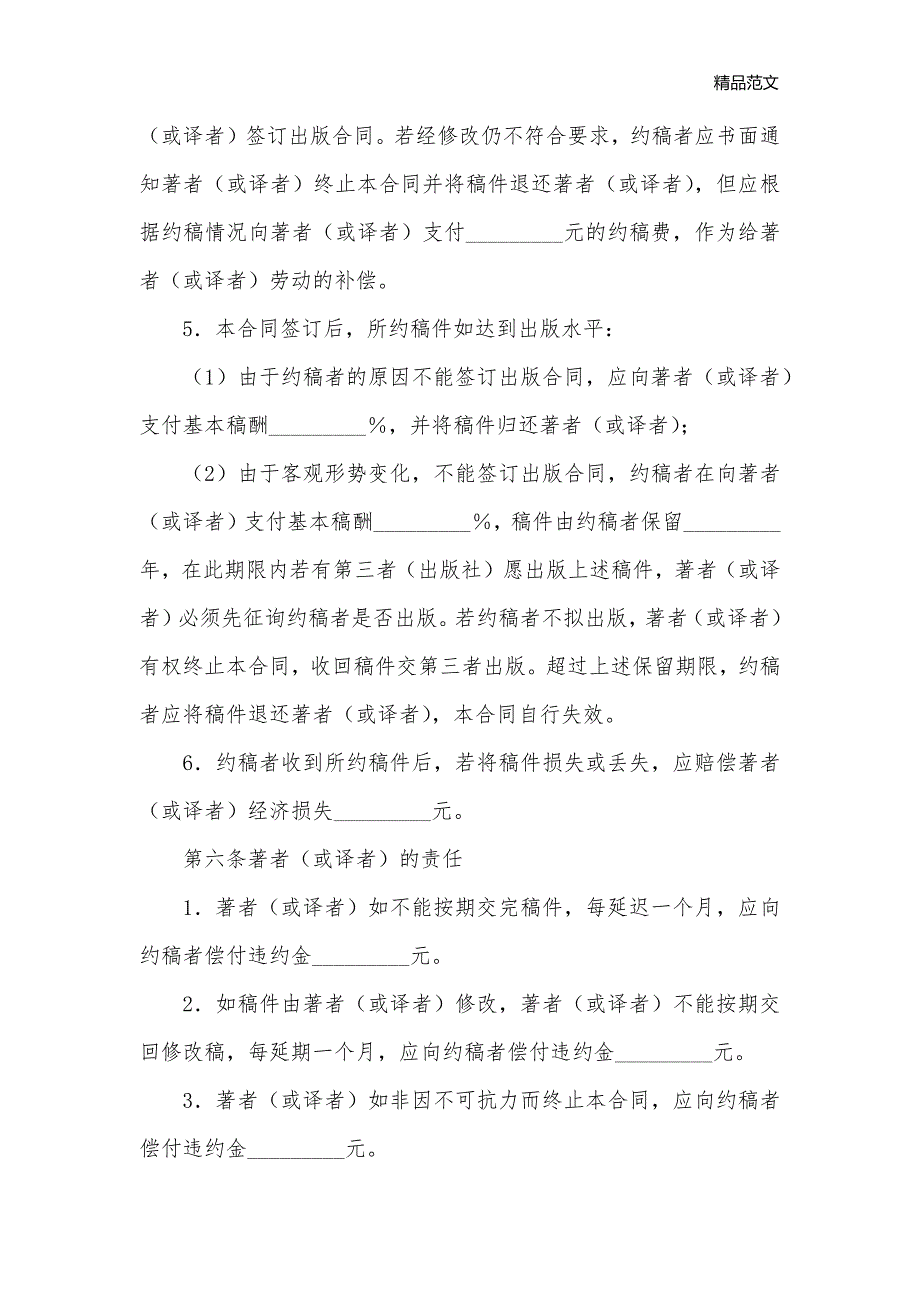 精品范文
（或译者）签订出版合同。若经修改仍不符合要求，约稿者应书面通
知著者（或译者）终止本合同并将稿件退还著者（或译者），但应根
据约稿情况向著者（或译者）支付_________元的约稿费，作为给著
者（或译者）劳动的补偿。
5．本合同签订后，所约稿件如达到出版水平：
（1）由于约稿者的原因不能签订出版合同，应向著者（或译者）
支付基本稿酬_________％，并将稿件归还著者（或译者）；
（2）由于客观形势变化，不能签订出版合同，约稿者在向著者
（或译者）支付基本稿酬_________％，稿件由约稿者保留_________
年，在此期限内若有第三者（出版社）愿出版上述稿件，著者（或译
者）必须先征询约稿者是否出版。若约稿者不拟出版，著者（或译者）
有权终止本合同，收回稿件交第三者出版。超过上述保留期限，约稿
者应将稿件退还著者（或译者），本合同自行失效。
6．约稿者收到所约稿件后，若将稿件损失或丢失，应赔偿著者
（或译者）经济损失_________元。
第六条著者（或译者）的责任
1．著者（或译者）如不能按期交完稿件，每延迟一个月，应向
约稿者偿付违约金_________元。
2．如稿件由著者（或译者）修改，著者（或译者）不能按期交
回修改稿，每延期一个月，应向约稿者偿付违约金_________元。
3．著者（或译者）如非因不可抗力而终止本合同，应向约稿者
偿付违约金_________元。